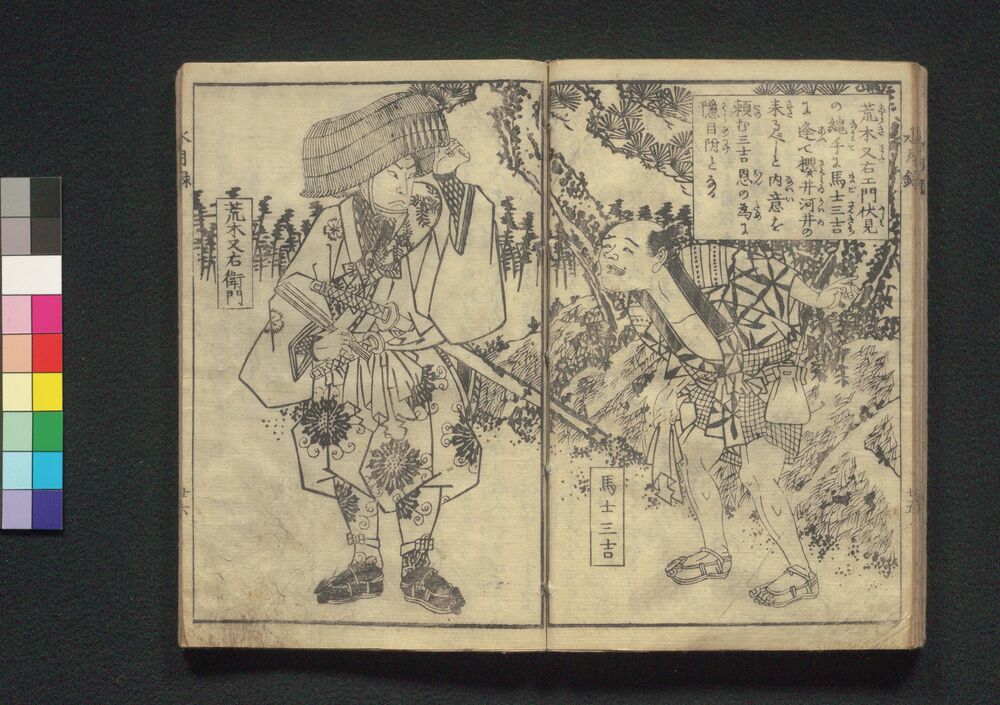 荒木又右エ門伏見
の縄手に馬士三吉
に逢て櫻井河井の
来るべしと内意を
頼む三吉恩の為に
隠目附となる
馬士三吉
廿五
荒木又右衛門
廿六